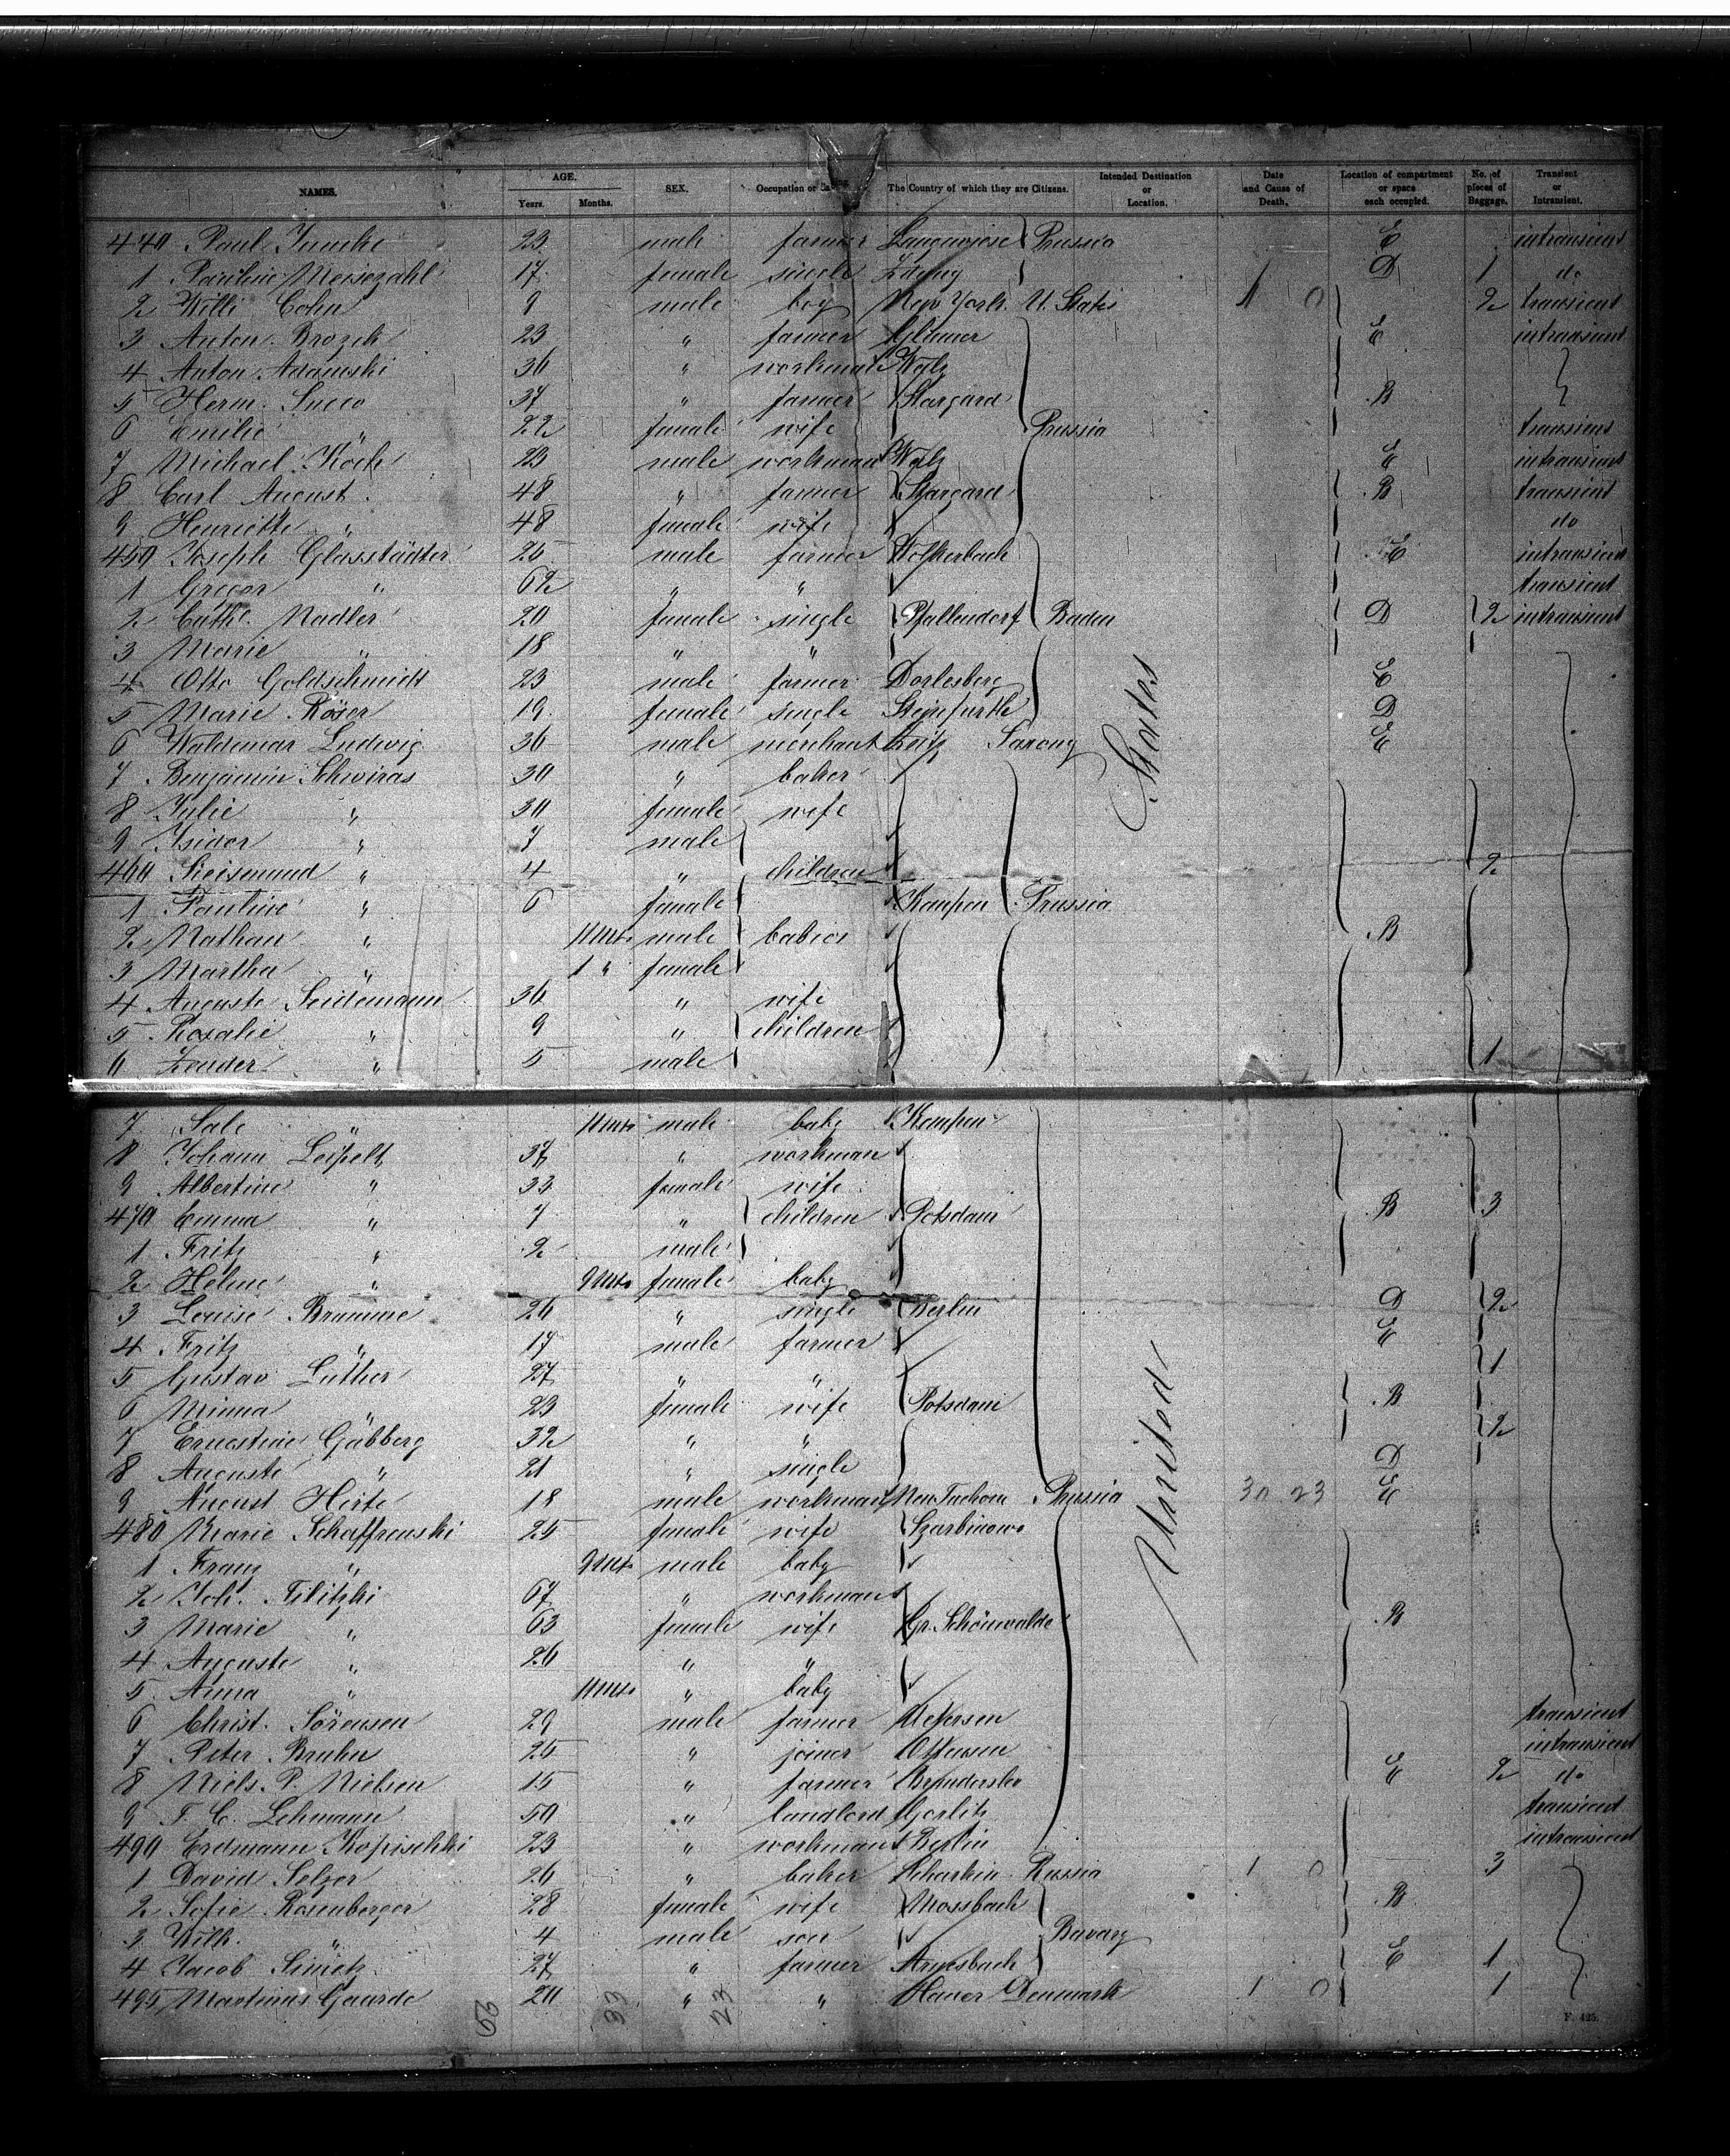 NAMES. AGE. Years. Months. SEX. Occupation or The Country of which they are Citizens. Intended Destination or Location. Date and Cause of Death. Location of compartment or space each occupied. No. of pieces of Baggage. Transient or Intransient.
440 Paul 23 male farmer Prussia E intransient
1 Pauline Meisezahl 17 female single D 1 do
2 Willi Cohn 9 male boy New York U. States 1 0 2 transient
3 Anton Brozek 23 " farmer E intransient
4 Anton Adamski 36 " workman
5 Herm. Succo 37 " farmer Stargard B
6 Emilie " 22 female wife Prussia transient
7 Michael Koch 23 male workman E intransient
8 Carl August 48 " farmer Stargard B transient
9 Henriette " 48 female wife do
450 Joseph Glasstädter 25 male farmer Wolkerbach E intransient
1 Gregor " 62 " " transient
2 Cath. Nadler 20 female single Pfallendorf Baden D 2 intransient
3 Marie " 18 " "
4 Otto Goldschmidt 23 male farmer Dorlesberg E
5 Marie Röser 19 female single Steinfurth D
6 Waldemar Ludwig 36 male merchant Zeitz Saxony E
7 Benjamin Schwiras 30 " baker
8 Julie " 30 female wife
9 Isidor " 7 male
460 Sieismund " 4 " children 2
1 Pauline " 6 female Kempen Prussia
2 Nathan " 11 Mts male babies B
3 Martha " 1 " female
4 Auguste Seidemann 36 " wife
5 Rosalie " 9 " children
6 Zender " 5 male 1
7 Sale " 11 Mts male baby Kempen
8 Johann Leipelt 37 " workman
9 Albertine " 33 female wife
470 Emma " 7 " children Potsdam B 3
1 Fritz " 2 male
2 Helene " 9 Mts female baby
3 Louise Bramme 26 " single Berlin D 2
4 Fritz " 17 male farmer E
5 Gustav Luther 27 " " 1
6 Minna " 23 female wife Potsdam B
7 Ernestine Gäbberg 32 " " 2
8 Auguste " 21 " single D
9 August Hirte 18 male workman Prussia 30 23 E
480 Marie Schaffrenski 25 female wife Szarbinowo
1 Franz " 9 Mts male baby
2 Joh. Filitzki 67 " workman
3 Marie " 63 female wife Gr. Schönwalde B
4 Auguste " 26 " "
5 Anna " 11 Mts " baby
6 Christ. Sörensen 29 male farmer Uetersen transient
7 Peter Bruhn 25 " joiner Ottensen intransient
8 Niels P. Nielsen 15 " farmer Brönderslev E 2 do
9 F. C. Lehmann 50 " landlord Görlitz transient
490 Erdmann Kopischki 23 " workman Berlin intransient
1 David Selzer 26 " baker Russia 1 0 3
2 Sofie Rosenberger 28 female wife Mossbach B
3 Wilh. " 4 male son Bavary
4 Jacob 27 " farmer E 1
495 Martinus Gaarde 20 " " Denmark 1 0 1
United States
29 33 23
F. 425.